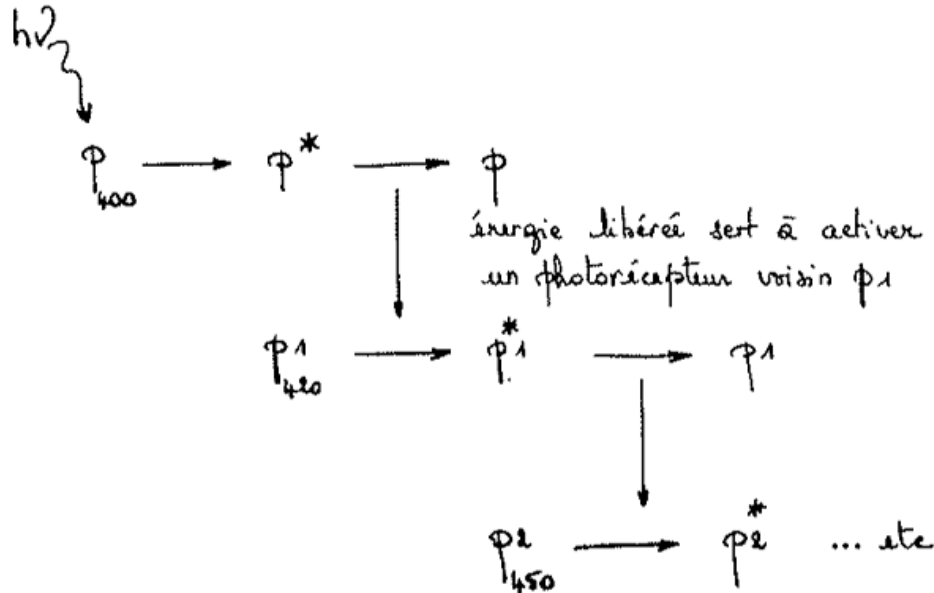 hν
P400 → P* → P
énergie libérée sert à activer
un photorécepteur voisin P1
P1 420 → P*1 → P1
P2 450 → P*2 ... etc